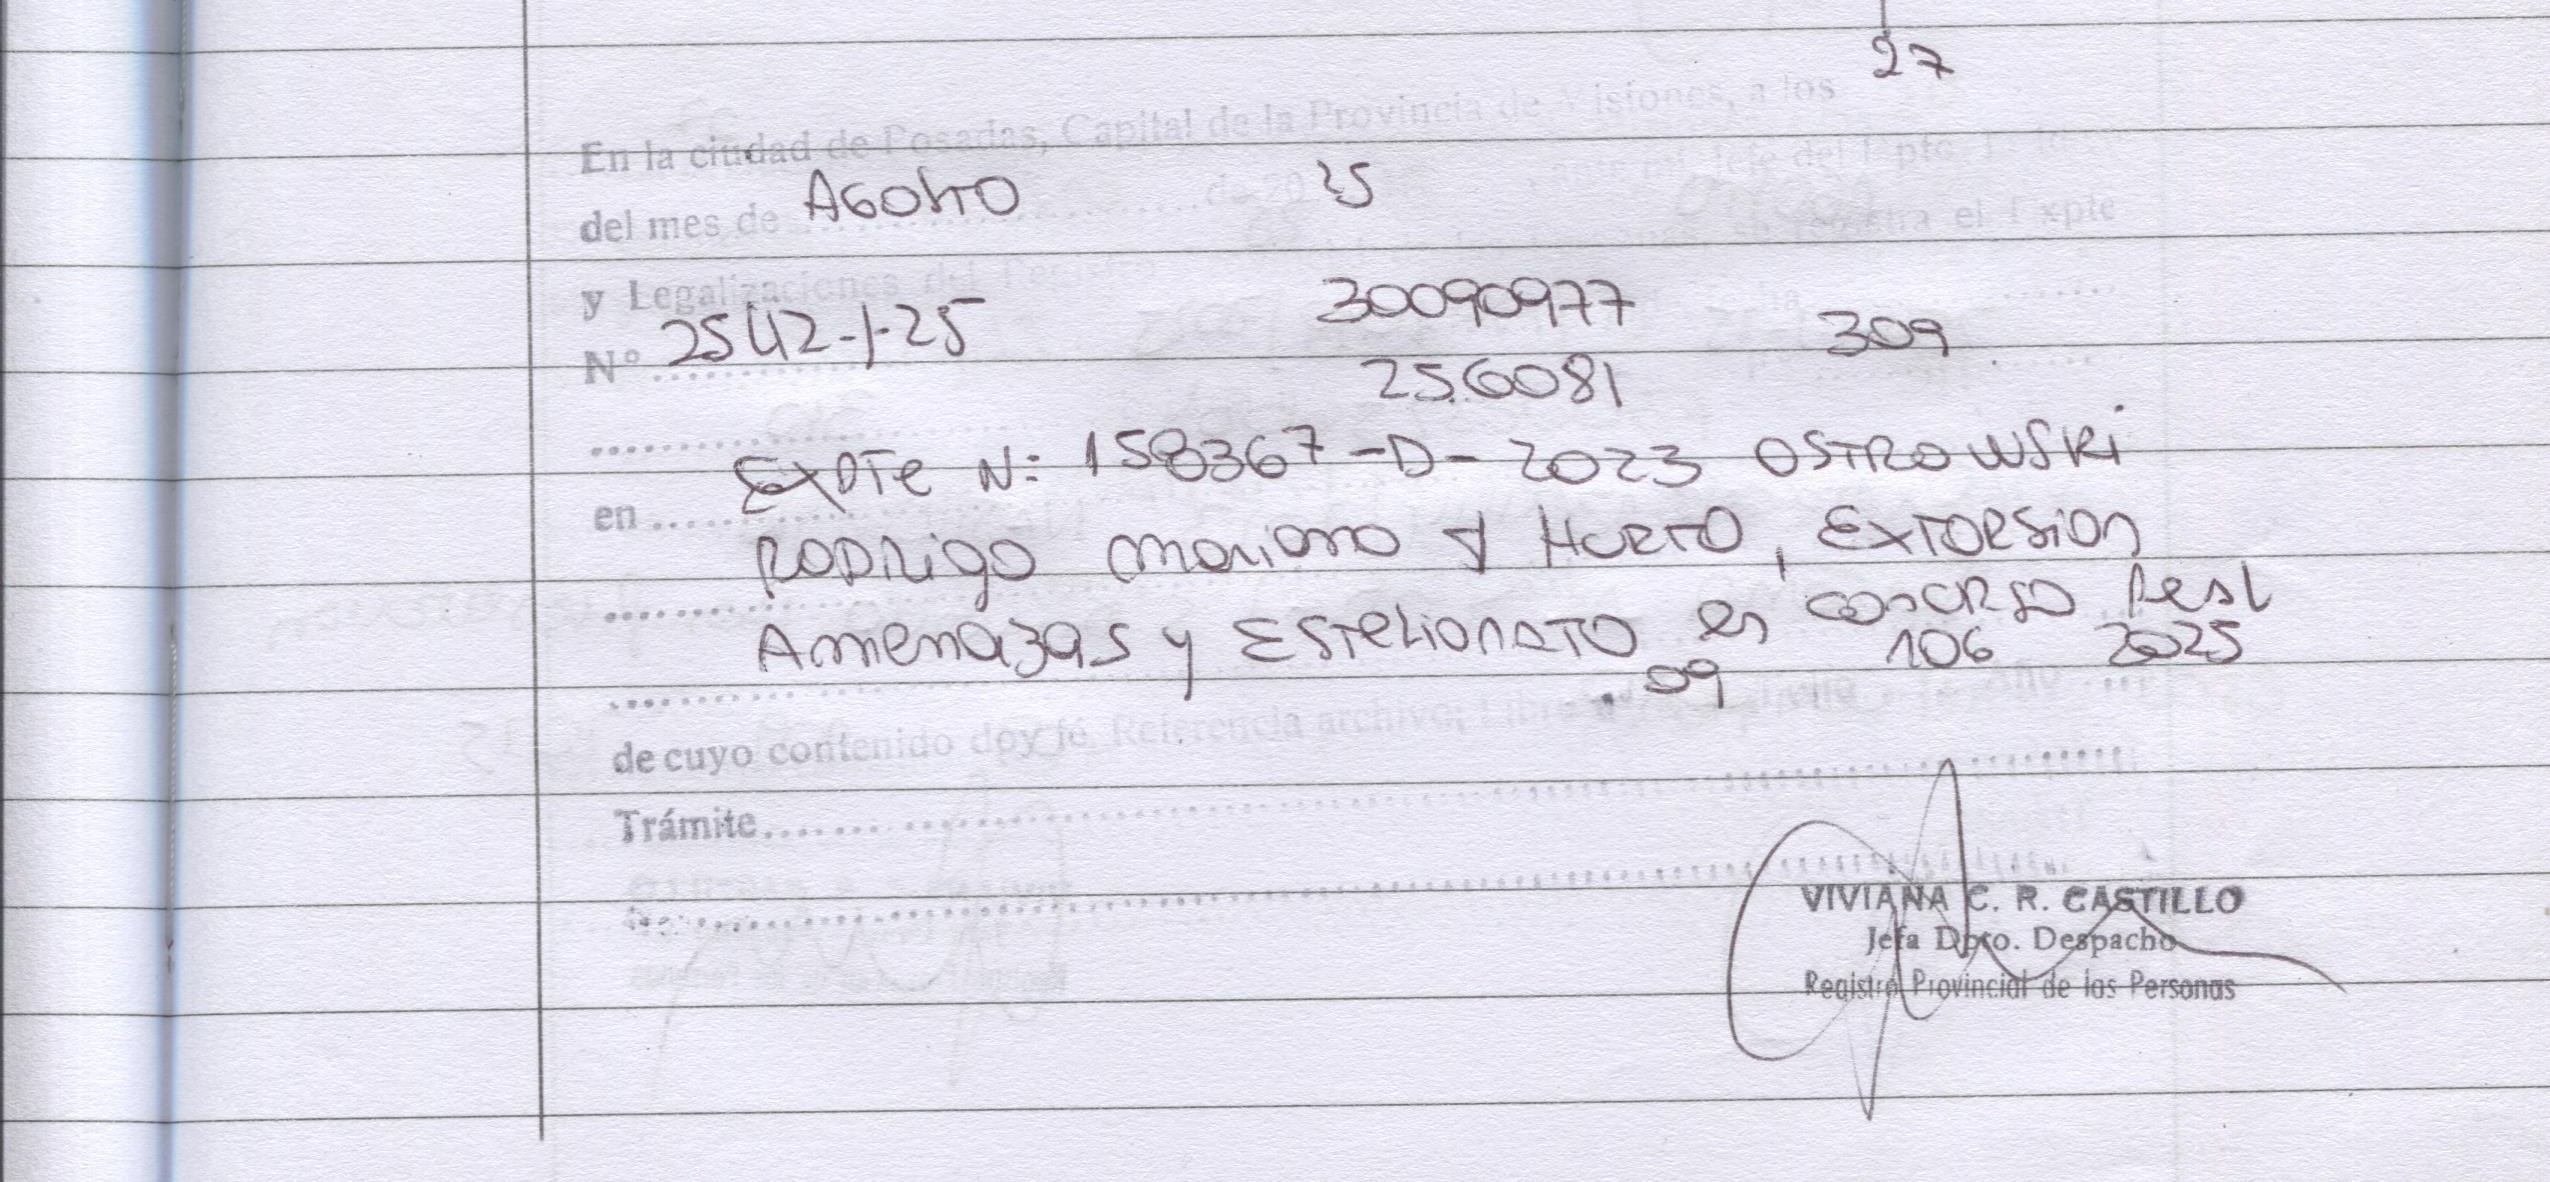 27
En la ciudad de Posadas, Capital de la Provincia de Misiones, a los
del mes de AGOSTO de 20 25 Jefe del Dpto.
y Legalizaciones del Registro se registra el Expte
30090977
N° 2542-1-25 309
256081
EXPTe N: 158367-D-2023 OSTROWSKi
en RODRigo mariano HURTO, EXTORSion
Amenazas y ESTelionATO en concRSO Real
09 106 2025
de cuyo contenido doy fé. Referencia archivo; Libro Año
Trámite
VIVIANA C. R. CASTILLO
Jefa Dpto. Despacho
Registro Provincial de las Personas